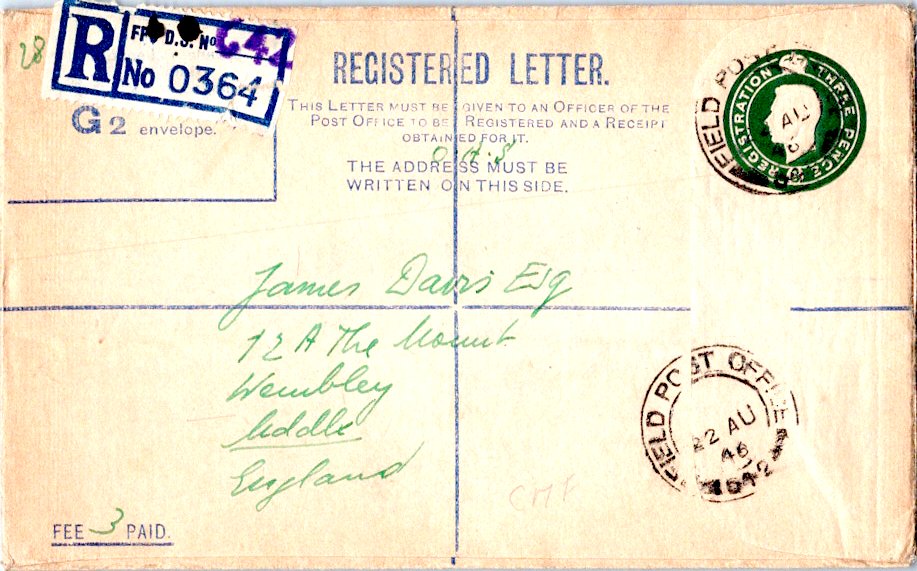 28
R
FPO D.S. No 642
No 0364
G2 envelope.
REGISTERED LETTER.
THIS LETTER MUST BE GIVEN TO AN OFFICER OF THE
POST OFFICE TO BE REGISTERED AND A RECEIPT
OBTAINED FOR IT.
O.H.S
THE ADDRESS MUST BE
WRITTEN ON THIS SIDE.
REGISTRATION THREE PENCE
FIELD POST
AU
James Davis Esq
12A The Mount
Wembley
Middlx
England
FIELD POST OFFICE
22 AU
46
642
CMF
FEE 3 PAID.